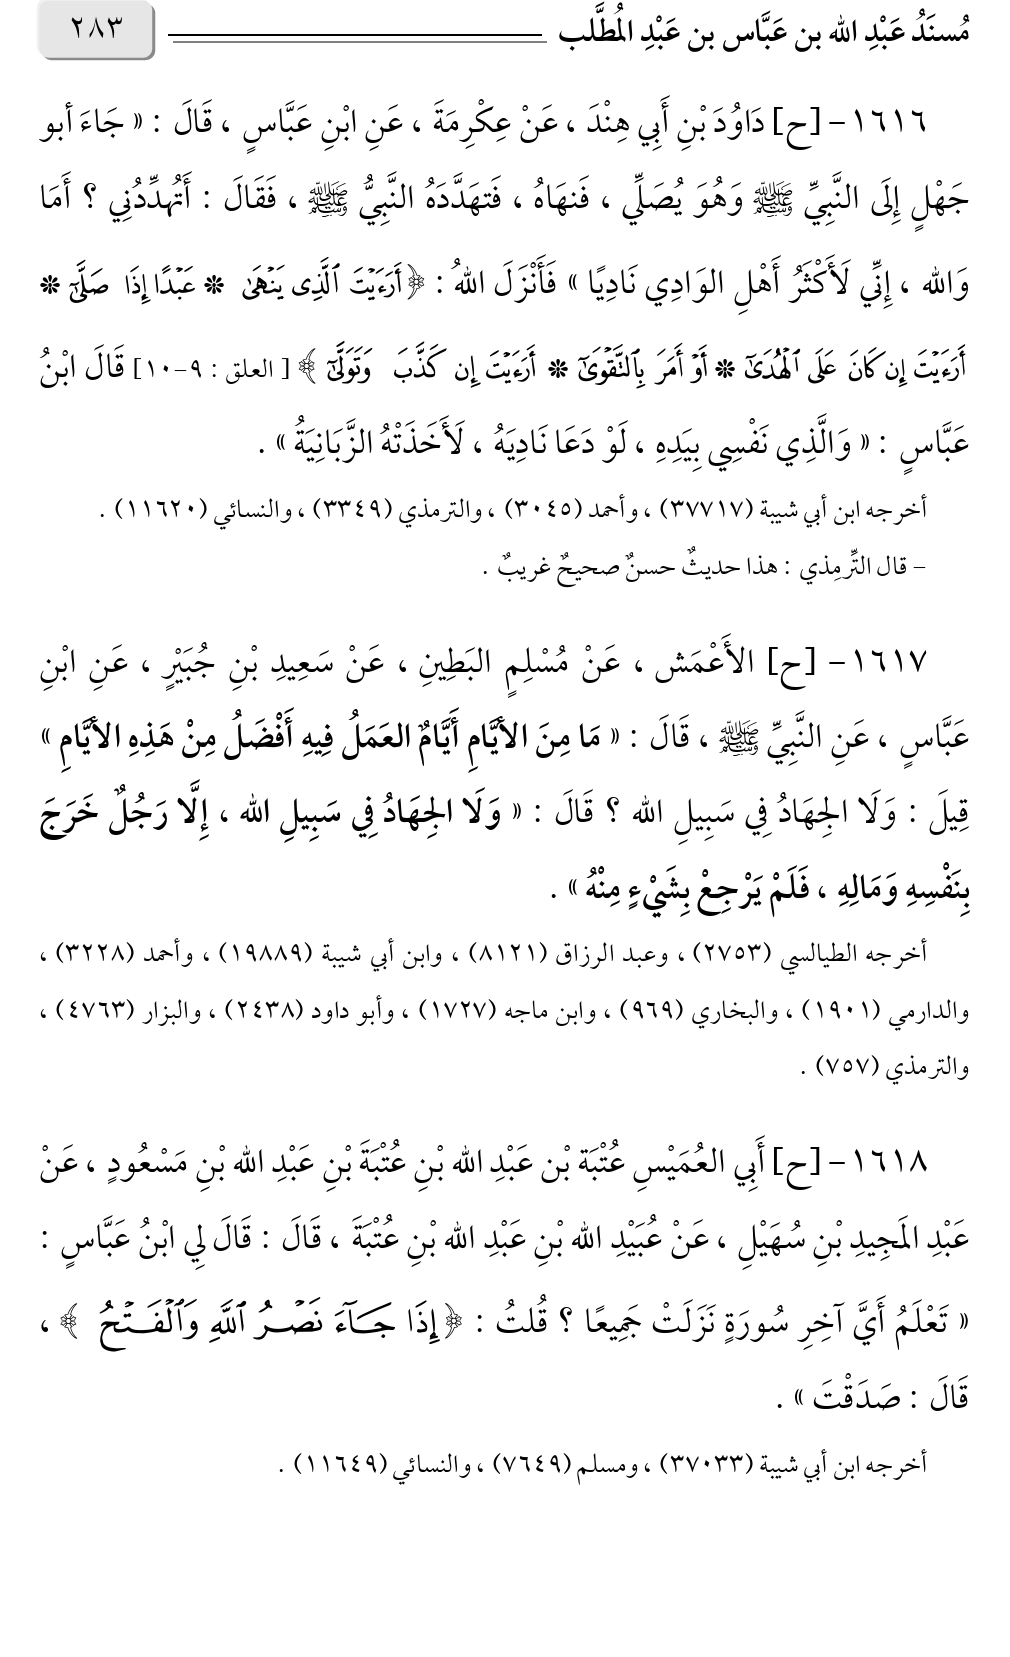 مُسنَدُ عَبْدِ الله بن عَبَّاس بن عَبْدِ المُطَّلب
٢٨٣
١٦١٦- [ح] دَاوُدَ بْنِ أَبِي هِنْدَ ، عَنْ عِكْرِمَةَ ، عَنِ ابْنِ عَبَّاسٍ ، قَالَ : « جَاءَ أبو
جَهْلٍ إِلَى النَّبِيِّ ﷺ وَهُوَ يُصَلِّي ، فَنهَاهُ ، فَتهَدَّدَهُ النَّبِيُّ ﷺ ، فَقَالَ : أَتُهدِّدُنِي ؟ أَمَا
وَالله ، إِنِّي لَأَكْثَرُ أَهْلِ الوَادِي نَادِيًا » فَأَنْزَلَ اللهُ : ﴿أَرَءَيْتَ ٱلَّذِى يَنْهَىٰ * عَبْدًا إِذَا صَلَّىٰٓ *
أَرَءَيْتَ إِن كَانَ عَلَى ٱلْهُدَىٰٓ * أَوْ أَمَرَ بِٱلتَّقْوَىٰٓ * أَرَءَيْتَ إِن كَذَّبَ وَتَوَلَّىٰٓ ﴾ [ العلق : ٩-١٠] قَالَ ابْنُ
عَبَّاسٍ : « وَالَّذِي نَفْسِي بِيَدِهِ ، لَوْ دَعَا نَادِيَهُ ، لَأَخَذَتْهُ الزَّبَانِيَةُ » .
أخرجه ابن أبي شيبة (٣٧٧١٧) ، وأحمد (٣٠٤٥) ، والترمذي (٣٣٤٩) ، والنسائي (١١٦٢٠) .
- قال التِّرمِذي : هذا حديثٌ حسنٌ صحيحٌ غريبٌ .
١٦١٧- [ح] الأَعْمَش ، عَنْ مُسْلِمٍ البَطِينِ ، عَنْ سَعِيدِ بْنِ جُبَيْرٍ ، عَنِ ابْنِ
عَبَّاسٍ ، عَنِ النَّبِيِّ ﷺ ، قَالَ : « مَا مِنَ الأيَّامِ أَيَّامٌ العَمَلُ فِيهِ أَفْضَلُ مِنْ هَذِهِ الأيَّامِ »
قِيلَ : وَلَا الجِهَادُ فِي سَبِيلِ الله ؟ قَالَ : « وَلَا الجِهَادُ فِي سَبِيلِ الله ، إِلَّا رَجُلٌ خَرَجَ
بِنَفْسِهِ وَمَالِهِ ، فَلَمْ يَرْجِعْ بِشَيْءٍ مِنْهُ » .
أخرجه الطيالسي (٢٧٥٣) ، وعبد الرزاق (٨١٢١) ، وابن أبي شيبة (١٩٨٨٩) ، وأحمد (٣٢٢٨) ،
والدارمي (١٩٠١) ، والبخاري (٩٦٩) ، وابن ماجه (١٧٢٧) ، وأبو داود (٢٤٣٨) ، والبزار (٤٧٦٣) ،
والترمذي (٧٥٧) .
١٦١٨- [ح] أَبِي العُمَيْسِ عُتْبَة بْن عَبْدِ الله بْنِ عُتْبَةَ بْنِ عَبْدِ الله بْنِ مَسْعُودٍ ، عَنْ
عَبْدِ المَجِيدِ بْنِ سُهَيْلِ ، عَنْ عُبَيْدِ الله بْنِ عَبْدِ الله بْنِ عُتْبَةَ ، قَالَ : قَالَ لِي ابْنُ عَبَّاسٍ :
« تَعْلَمُ أَيَّ آخِرِ سُورَةٍ نَزَلَتْ جَمِيعًا ؟ قُلتُ : ﴿إِذَا جَآءَ نَصْرُ ٱللَّهِ وَٱلْفَتْحُ ﴾ ،
قَالَ : صَدَقْتَ » .
أخرجه ابن أبي شيبة (٣٧٠٣٣) ، ومسلم (٧٦٤٩) ، والنسائي (١١٦٤٩) .